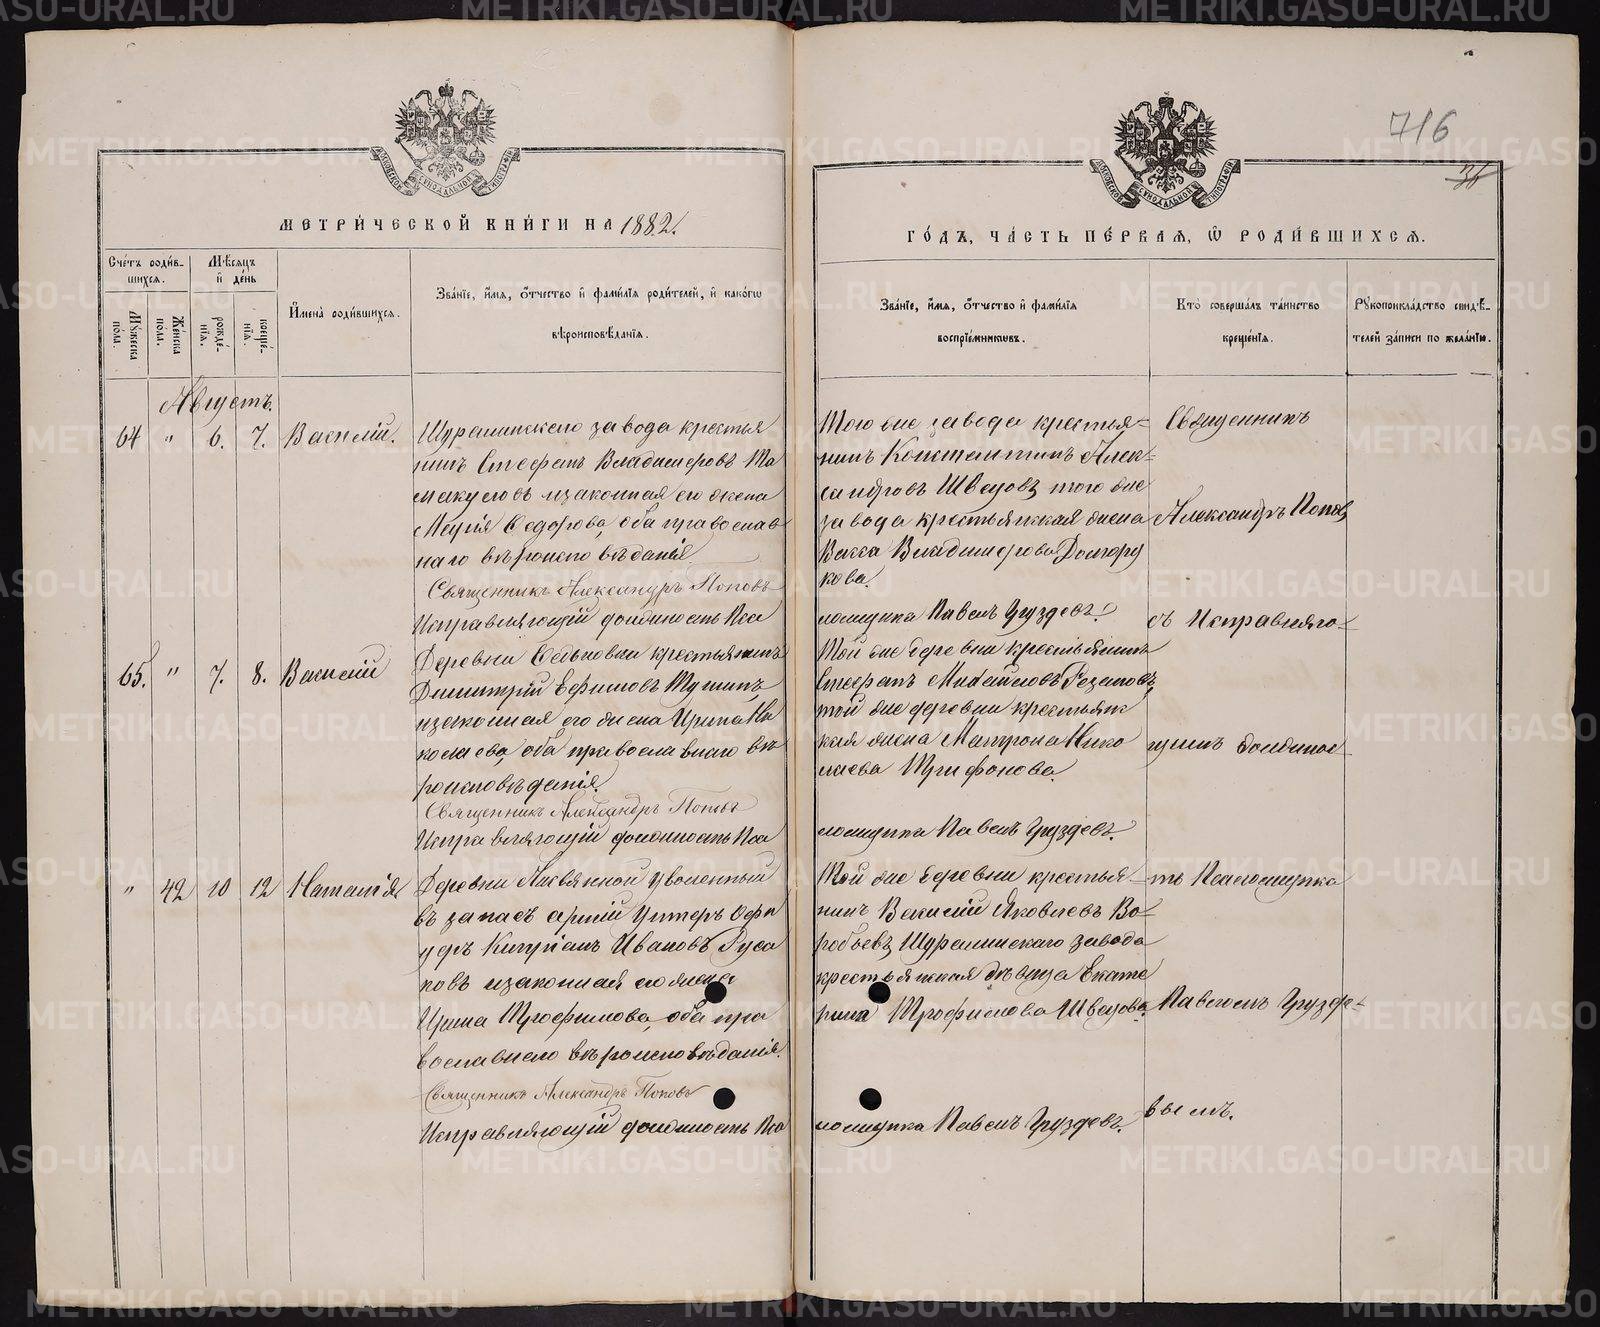 МЕТРИ́ЧЕСКОЙ КНИ́ГИ НА 1882.
Сче́тъ роди́в-
шихся.
Мѣсяцъ
и҆ де́нь
Му́жеска
по́ла.
Же́нска
пола.
рожде́-
нія.
креще́-
нія.
И҆мена̀ роди́вшихся.
Зва́ніе, и҆́мя, ѻ҆́тчество и҆ фами́лія роди́телей, и҆ како́гѡ
вѣроисповѣ́данія.
Августъ.
64 " 6. 7. Василій.
Шуралинскаго завода крестья
нинъ Стефанъ Владимировъ
и законная его жена
Марія Федорова, оба православ
наго вѣроисповѣданія
Священникъ Александръ Поповъ
Исправляющій должность Пса
65. " 7. 8. Василій
Деревни крестьянинъ
Димитрій Ефимовъ
и законная его жена Ирина Ни
колаева, оба православнаго вѣ
роисповѣданія.
Священникъ Александръ Поповъ
Исправляющій должность Пса
" 42 10 12 Наталія
Деревни уволенный
въ запасъ арміи Унтеръ Офи
церъ Кипріанъ Ивановъ Руса
ковъ и законная его жена
Ирина Трофимова, оба пра
вославнаго вѣроисповѣданія.
Священникъ Александръ Поповъ
Исправляющій должность Пса
716
ГО́ДЪ, ЧА́СТЬ ПЕ́РВАЯ, Ѡ҆ РОДИ́ВШИХСЯ.
Зва́ніе, и҆́мя, ѻ҆́тчество и҆ фами́лія
воспріе́мникѡвъ.
Кто̀ соверша́лъ та́инство
креще́нія.
Рꙋкоприкла́дство свидѣ́-
телей за́писи по жела́нію.
Того же завода крестья-
нинъ Константинъ Алек-
сандровъ Швецовъ, того же
завода крестьянская жена
Васса Владимирова Долгору
кова.
ломщика Павелъ Груздевъ.
Той же деревни крестьянинъ
Стефанъ Михайловъ
той же деревни крестьянс
кая жена Матрона Нико
лаева Трифонова.
ломщика Павелъ Груздевъ.
Той же деревни крестья-
нинъ Василій Яковлевъ Во-
робьевъ, Шуралинскаго завода
крестьянская дѣвица Екате
рина Трофимова Швецова.
ломщика Павелъ Груздевъ.
Священникъ
Александръ Поповъ
съ Исправляю-
щимъ должнос-
ть Псаломщика
Павломъ Груздe-
вымъ.
METRIKI.GASO-URAL.RU